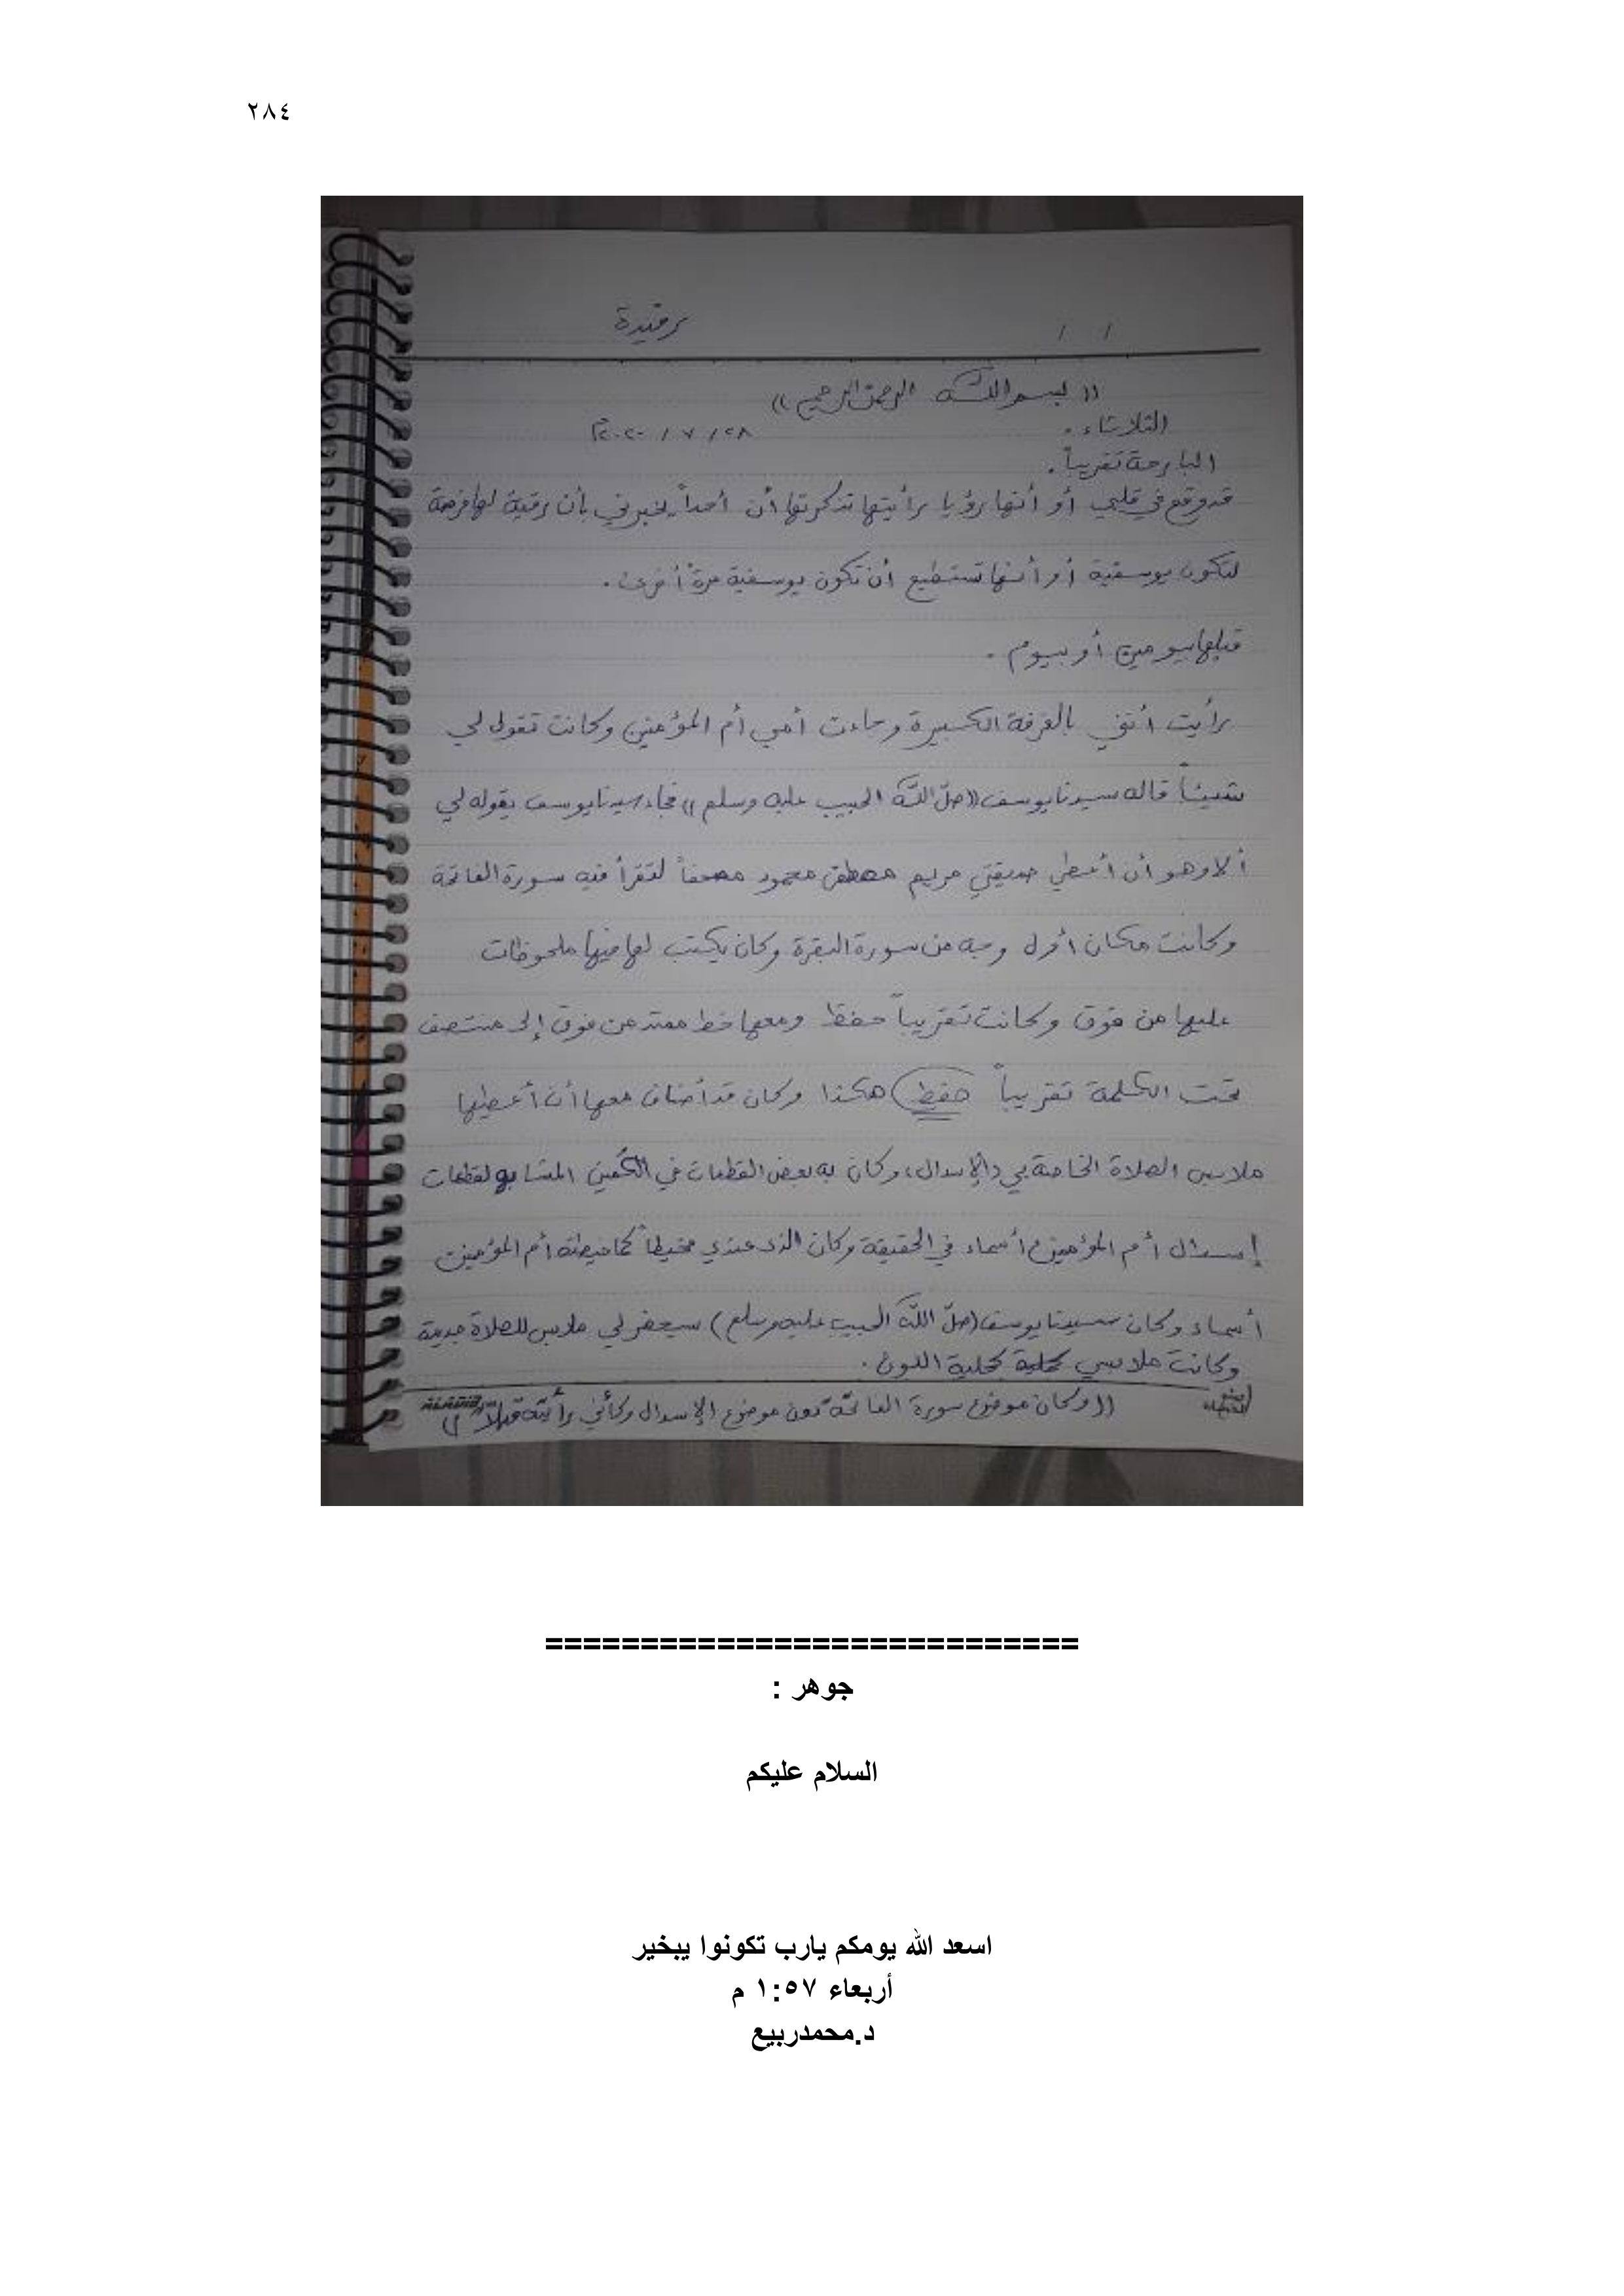 ٢٨٤
رفيدة
/ /
(( بسم اللـه الرحمن الرحيم ))
الثلاثاء .
٢٨ / ٧ / ٢٠٢٠م
البارحة تقريباً .
قد وقع في قلبي أو أنها رؤيا رأيتها تذكرتها أن أحداً يخبرني بأن رقية لها فرصة
لتكون يوسفية أو أنها تستطيع أن تكون يوسفية مرة أخرى .
قبلها بيومين أو بيوم .
رأيت أنني بالغرفة الكبيرة وجاءت أمي أم المؤمنين وكانت تقول لي
شيئاً قاله سيدنا يوسف ((صلّ اللّه الحبيب عليه وسلم)) فجاء سيدنا يوسف يقوله لي
ألا وهو أن أعطي صديقتي مريم مصطفى محمود مصحفاً لتقرأ فيه سورة الفاتحة
وكانت مكان أول وجه من سورة البقرة وكان يكتب لها فيها ملحوظات
عليها من فوق وكانت تقريباً حفظ ومعها خط ممتد من فوق إلى منتصف
تحت الكلمة تقريباً حفظ هكذا وكان قد أضاف معها أن أعطيها
ملابس الصلاة الخاصة بي (الإسدال) وكان به بعض القطعات في الكمين المشابه لقطعات
إسدال أم المؤمنين أسماء في الحقيقة وكان الذي عندي مخيطاً كما خيطته أم المؤمنين
أسماء وكان سيدنا يوسف (صلّ اللّه الحبيب عليه وسلم) سيحضر لي ملابس للصلاة جديدة
وكانت ملابسي كحلية كحلية اللون .
((وكان موضوع سورة الفاتحة دون موضوع الإسدال وكأني رأيته قبلاً))
============================
جوهر :
السلام عليكم
اسعد الله يومكم يارب تكونوا يبخير
أربعاء ١:٥٧ م
د.محمدربيع